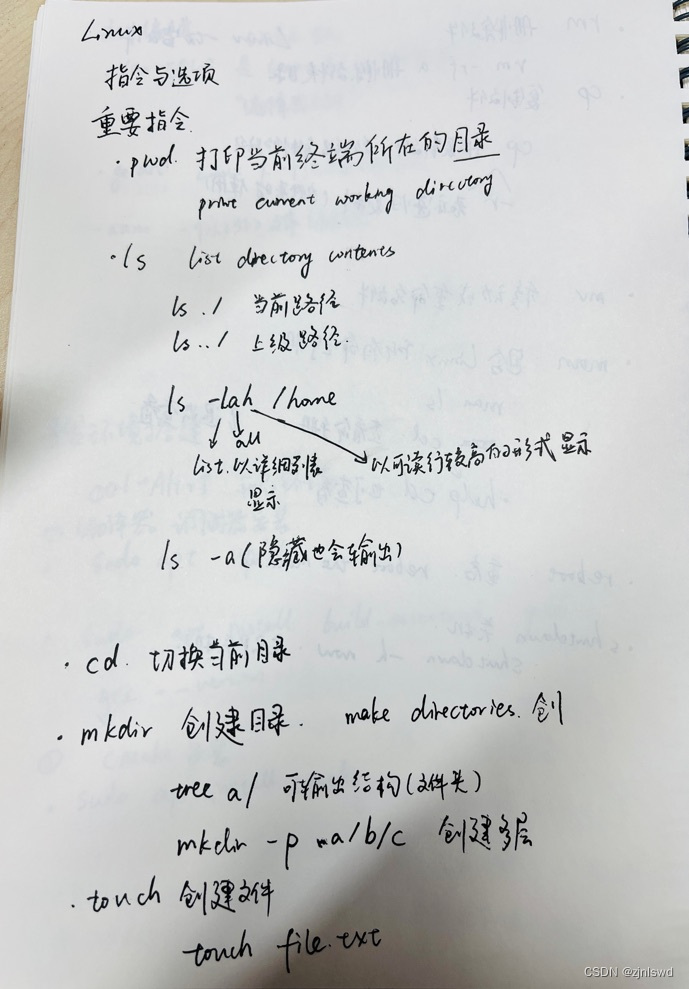 Linux
指令与选项
重要指令.
·pwd. 打印当前终端所在的目录
print current working directory
·ls list directory contents
ls ./ 当前路径
ls ../ 上级路径.
ls -lah /home
all
list.以详细列表 以可读行较高的形式显示
显示
ls -a(隐藏也会输出)
·cd. 切换当前目录
·mkdir 创建目录. make directories. 创
tree a/ 可输出结构(文件夹)
mkdir -p a/b/c 创建多层
·touch 创建文件
touch file.txt
CSDN @zjnlswd